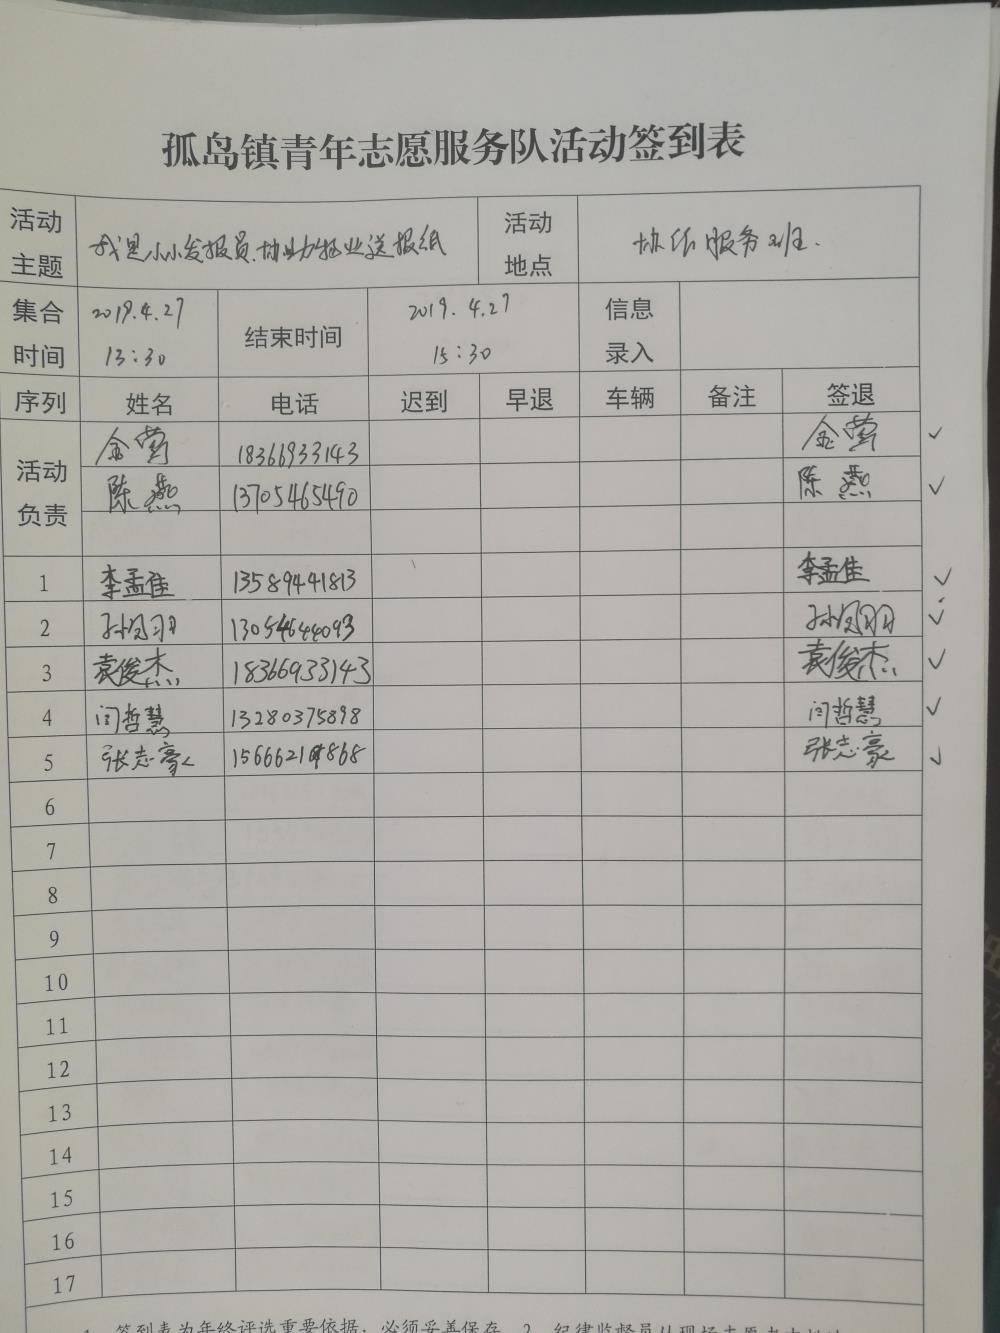 孤岛镇青年志愿服务队活动签到表
活动主题 我是小小发报员.协助物业送报纸 活动地点 协作服务班.
集合时间 2019.4.27 13:30 结束时间 2019.4.27 15:30 信息录入
序列 姓名 电话 迟到 早退 车辆 备注 签退
活动负责 金莺 18366933143 金莺 ✓
陈燕 13705465490 陈燕 ✓
1 李孟佳 13589441813 李孟佳 ✓
2 孙凤羽 13054644093 孙凤羽 ✓
3 袁俊杰 18366933143 袁俊杰 ✓
4 闫哲慧 13280375898 闫哲慧 ✓
5 张志豪 15666218868 张志豪 ✓
6
7
8
9
10
11
12
13
14
15
16
17
1、签到表为年终评选重要依据，必须妥善保存 2、纪律监督员从现场志愿者中